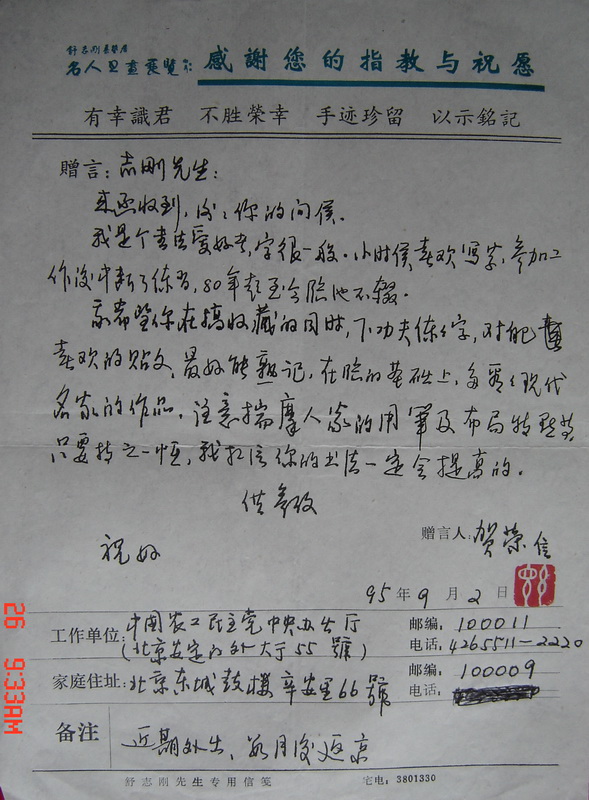 舒志刚
名人 展覽 感謝您的指教与祝愿
有幸識君 不胜榮幸 手迹珍留 以示銘記
赠言：志刚先生：
来函收到，谢谢你的问候。
我是个书法爱好者，字很一般。小时候喜欢写字，参加工
作後中断了练习，80年起至今临池不辍。
我希望你在搞收藏的同时，下功夫练练字，对自己
喜欢的贴文，最好能熟记，在临的基础上，多看看现代
名家的作品，注意揣摩人家的用筆及布局特點
只要持之一恒，我相信你的书法一定会提高的。
供参改
赠言人：贺榮信
祝好
95年9月2日
工作单位：中国农工民主党中央办公厅 邮编：100011
（北京安定门外大于55號） 电话：4265511-2220
家庭住址：北京东城鼓樓辛安里66號 邮编：100009
电话：
备注 近期外出、数月後返京
舒志刚先生专用信笺 宅电：3801330
26 9:33AM